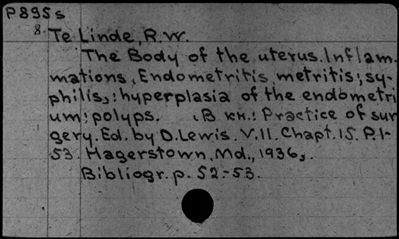 P895s
8. Te Linde, R.W.
The Body of the uterus. Inflam-
mations, Endometritis, metritis; sy-
philis,: hyperplasia of the endometri
um; polyps. (В кн.: Practice of sur
gery. Ed. by D. Lewis. V. 11. Chapt. 15. P. 1-
53. Hagerstown, Md., 1936).
Bibliogr. p. 52-53.